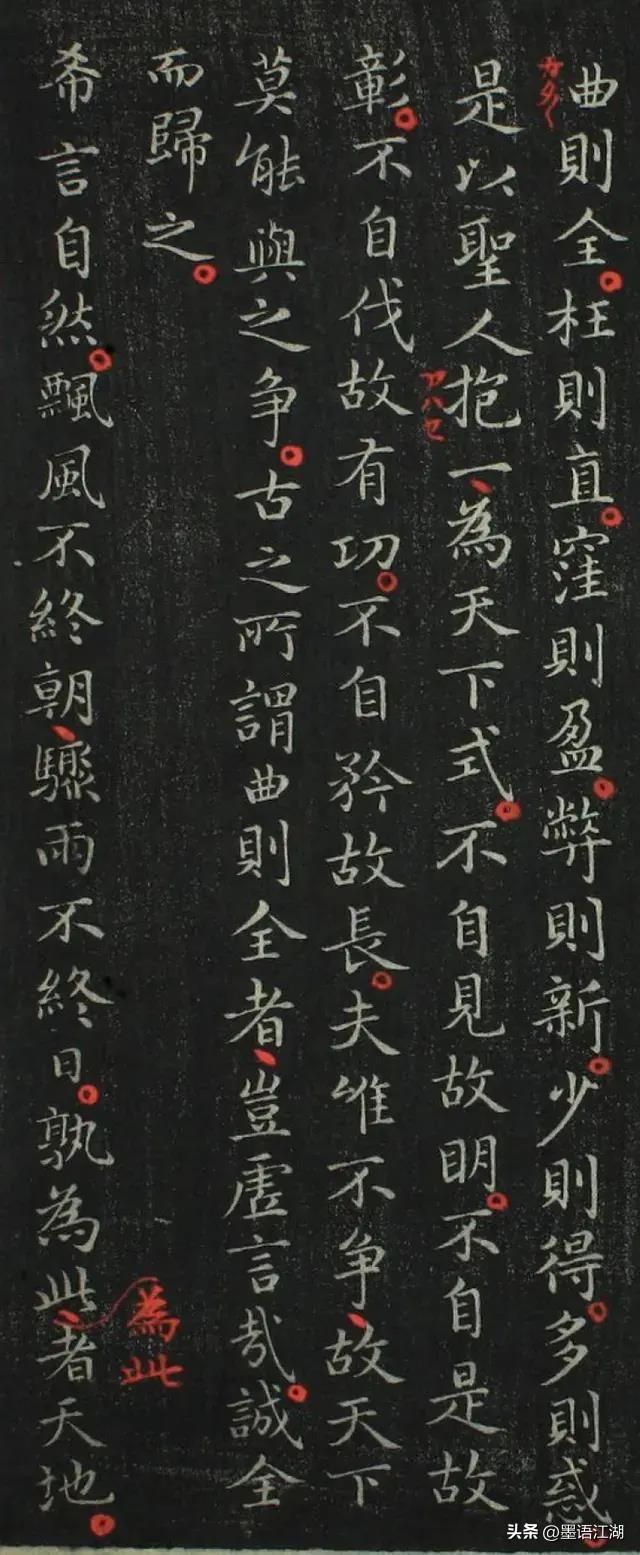 曲則全。枉則直。窪則盈。弊則新。少則得。多則惑。
是以聖人抱一、為天下式。不自見故明。不自是故
彰。不自伐故有功。不自矜故長。夫唯不争、故天下
莫能與之争。古之所謂曲則全者、豈虛言哉。誠全
而歸之。
希言自然。飄風不終朝、驟雨不終日。孰為此、者天地。
為此
アハセ
头条 @墨语江湖